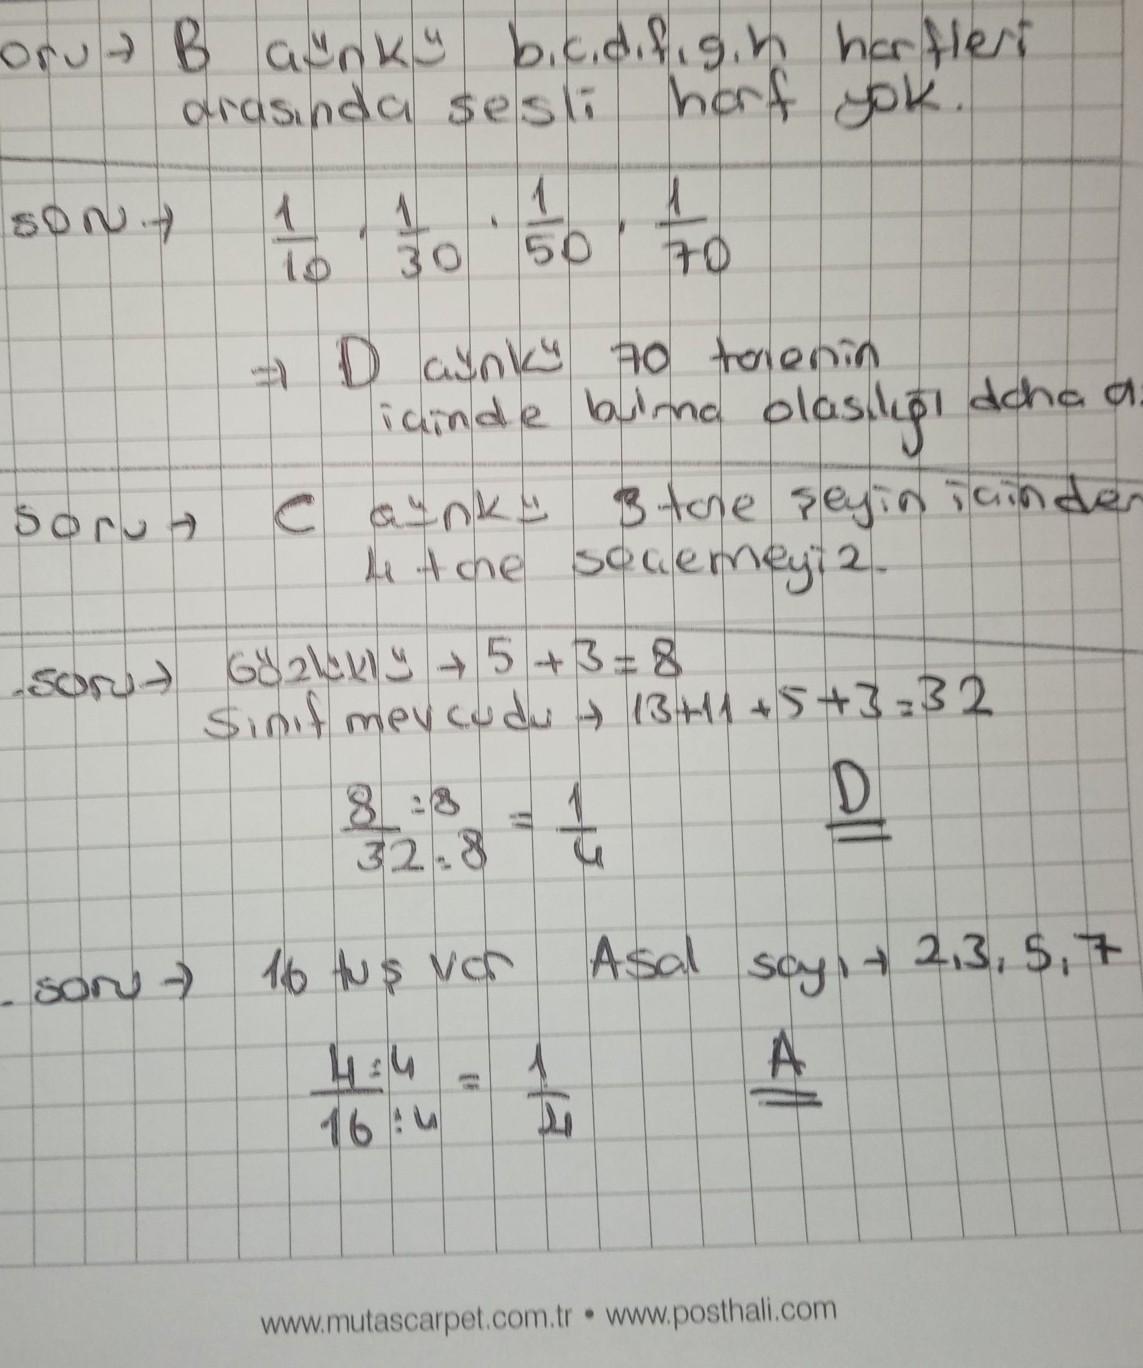 oru → B çünkü b.c.d.f.g.h harfleri
arasında sesli harf yok.
soru → 1/10 . 1/30 . 1/50 . 1/70
⇒ D çünkü 70 tanenin
içinde bulma olasılığı daha a
soru → C çünkü 3 tane şeyin içinden
4 tane seçemeyiz.
.soru → Gözlüklü → 5 + 3 = 8
Sınıf mevcudu → 13+11+5+3=32
8:8/32:8 = 1/4 D
. soru → 16 tuş var Asal sayı → 2,3,5,7
4:4/16:4 = 1/4 A
www.mutascarpet.com.tr • www.posthali.com